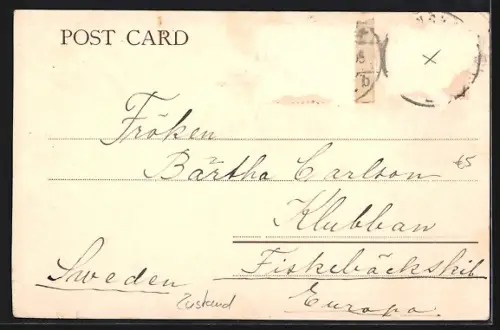 POST CARD
x
Fröken
Bärtha Carlson
65
Klubban
Fiskebäckskil
Sweden
Zustand
Europa.